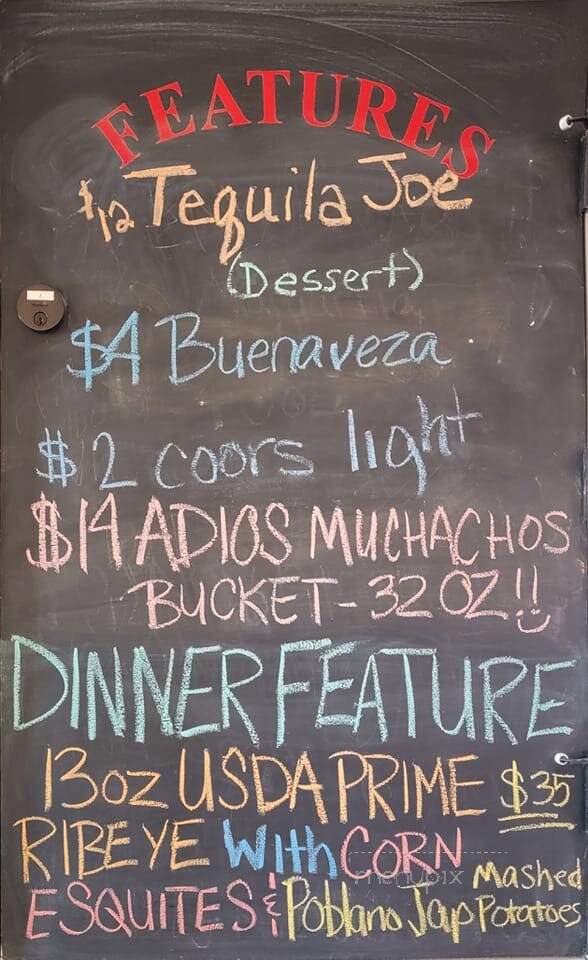 FEATURES
$12 Tequila Joe
(Dessert)
$4 Buenaveza
$2 coors light
$14 ADIOS MUCHACHOS
BUCKET - 32 OZ!!
DINNER FEATURE
13oz USDA PRIME $35
RIBEYE With CORN
ESQUITES & Poblano Jap Mashed
Potatoes
menupix